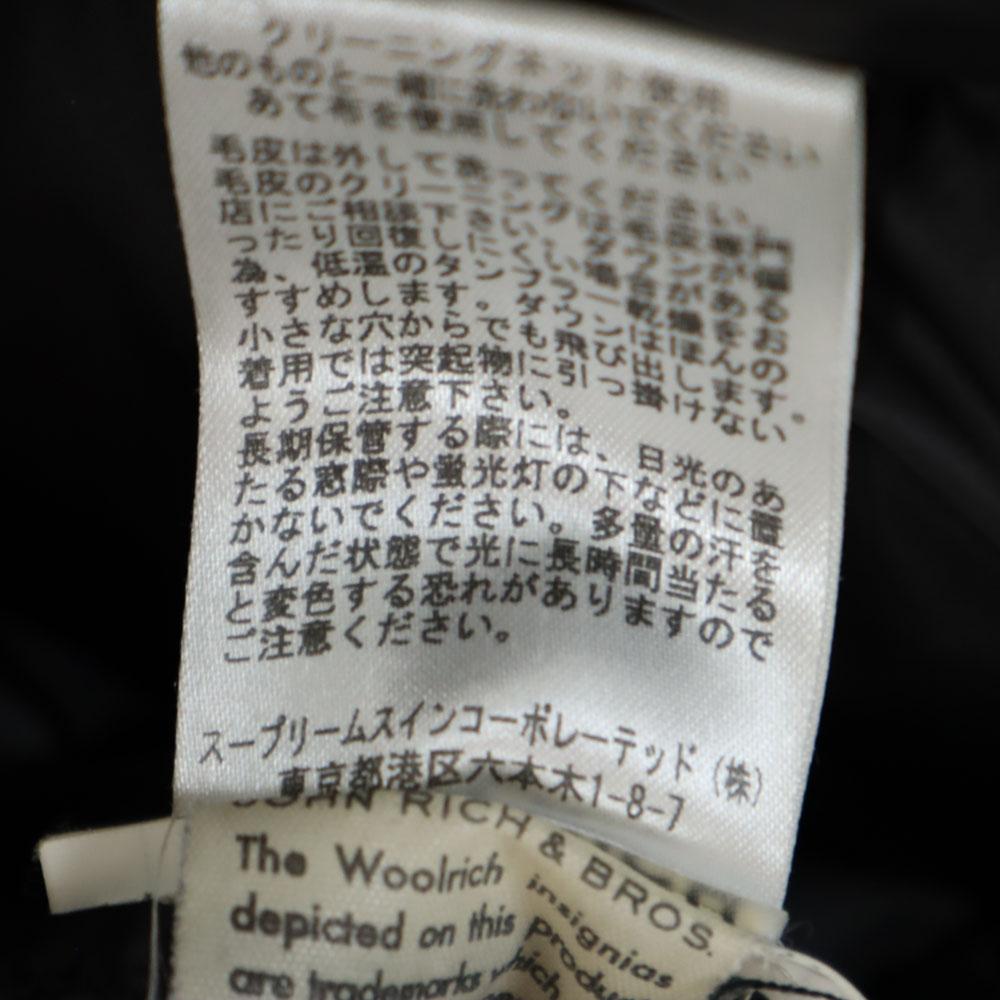 クリーニングネット使用
他のものと一緒に洗わないでください
あて布を使用してください
毛皮は外して洗ってください。
毛皮のクリーニングは毛皮専門
店にご相談下さい。ダウンがある
ったり回復しにくい場合がある
為、低温のタンブラー乾燥をお
すすめします。ダウンは ほんの
小さな穴からでも飛び出しますので
着用では突起物に引っ掛けない
ようご注意下さい。
長期保管する際には、日光のあ
たる窓際や蛍光灯の下などに置
かないでください。多量の汗を
含んだ状態で光に長時間当たる
と変色する恐れがありますので
ご注意ください。
スープリームスインコーポレーテッド(株)
東京都港区六本木1-8-7
JOHN RICH & BROS.
The Woolrich insignias
depicted on this product
are trademarks which